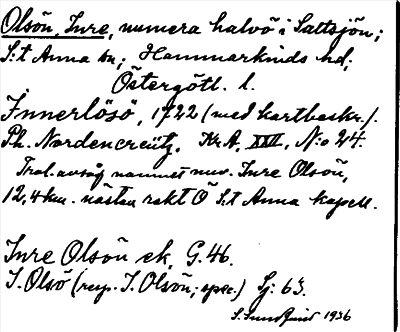 Olsön, Inre, numera halvö i Saltsjön;
S:t Anna sn; Hammarkinds hd;
Östergötl. l.
Innerlösö, 1722 (med kartbeskr.).
Ph. Nordencreütz. Kr.A, XXVI, N:o 24.
Trol. avsåg namnet nuv. Inre Olsön,
12,4 km. nästan rakt Ö S:t Anna kapell.
Inre Olsön ek. G. 46.
I. Olsö (resp. I. Olsön; spec.) Sj: 63.
1936